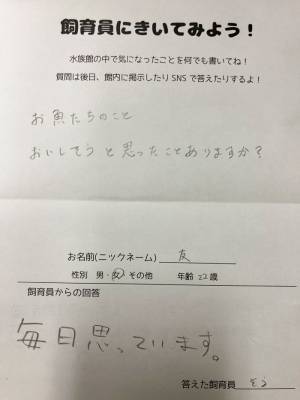 飼育員にきいてみよう！
水族館の中で気になったことを何でも書いてね！
質問は後日、館内に掲示したりSNSで答えたりするよ！
お魚たちのこと
おいしそうと思ったことありますか？
お名前(ニックネーム) 友
性別 男・女・その他 年齢 22 歳
飼育員からの回答
毎日思っています。
答えた飼育員 そう